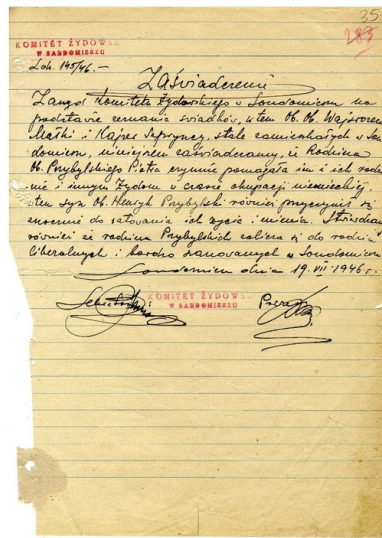 35
283
KOMITET ŻYDOWSKI
W SANDOMIERZU
L.ch. 145/46.-
Zaświadczenie
Zarząd Komitetu Żydowskiego w Sandomierzu na
podstawie zeznania świadków, w tem Ob. Ob. Wajsrozen
i Kajzer stale zamieszkałych w San-
domierzu, niniejszem zaświadczamy, iż Rodzina
Ob. Przybylskiego Piotra czynnie pomagała im i ich rodzi-
nie i innym Żydom w czasie okupacji niemieckiej,
w tem syn Ob. Henryk Przybylski również przyczynił się
znacznie do ratowania ich życia i mienia. Stwierdzam
również że rodzina Przybylskich zalicza się do rodzin
liberalnych i bardzo szanowanych w Sandomierzu
Sandomierz dnia 19 VII 1946 r.
Sekretarz
Prezes
KOMITET ŻYDOWSKI
W SANDOMIERZU